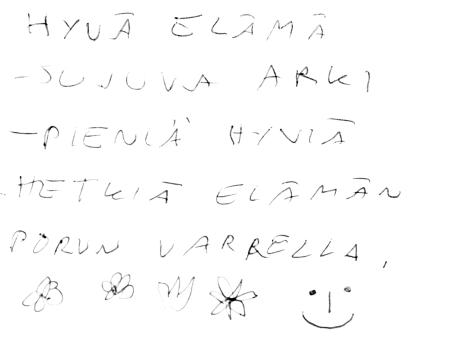 HYVÄ ELÄMÄ
-SUJUVA ARKI
-PIENIÄ HYVIÄ
HETKIÄ ELÄMÄN
PORUN VARRELLA,